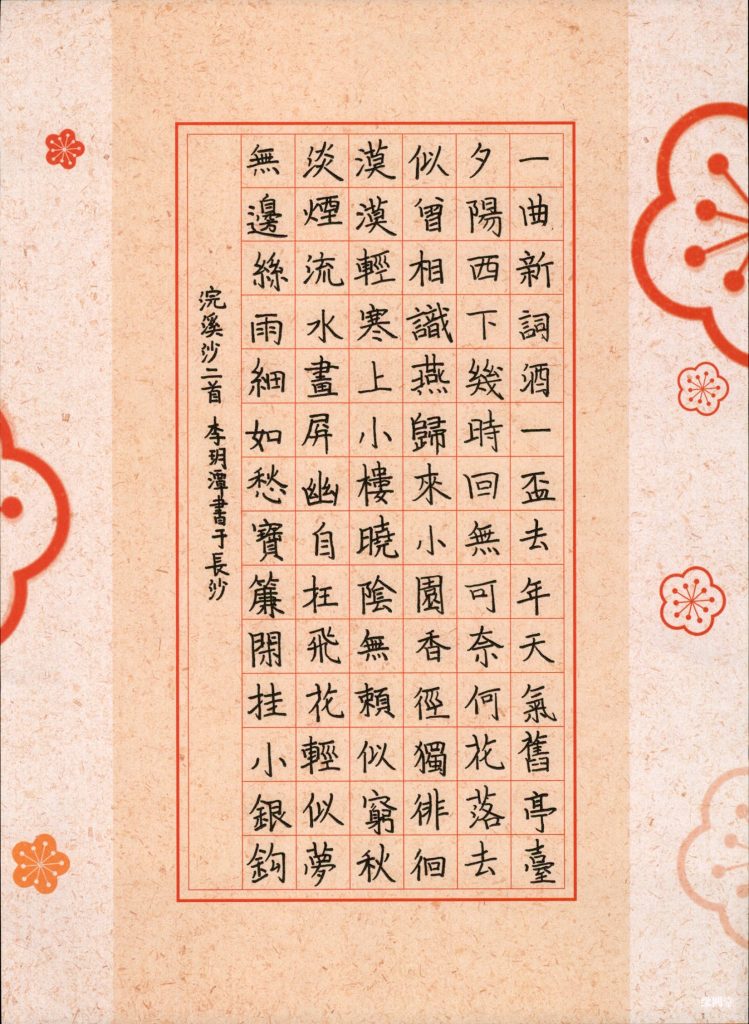 一曲新詞酒一盃去年天氣舊亭臺
夕陽西下幾時回無可奈何花落去
似曾相識燕歸來小園香徑獨徘徊
漠漠輕寒上小樓曉陰無賴似窮秋
淡煙流水畫屏幽自枉飛花輕似夢
無邊絲雨細如愁寶簾閑挂小銀鈎
浣溪沙二首 李玥潭書于長沙